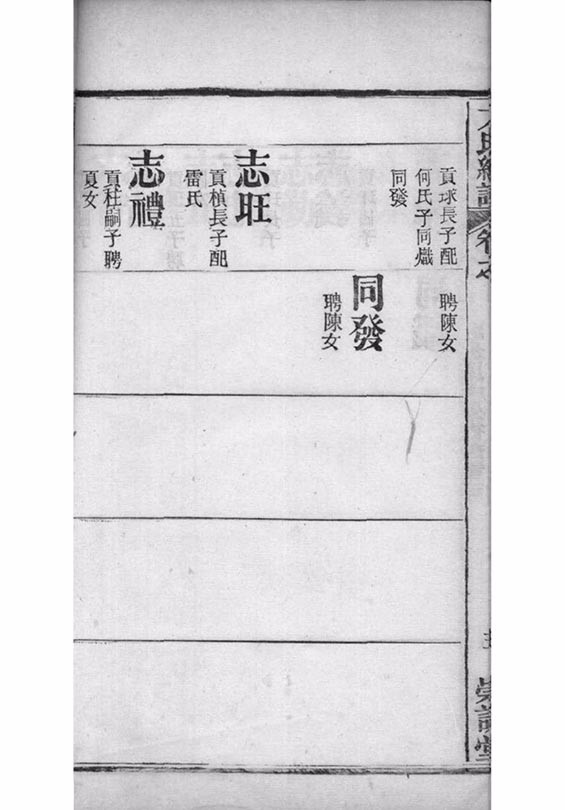 氏續譜
貢球長子配
何氏子同熾
同發
聘陳女
同發
聘陳女
志旺
貢楨長子配
雷氏
志禮
貢杜嗣子聘
夏女